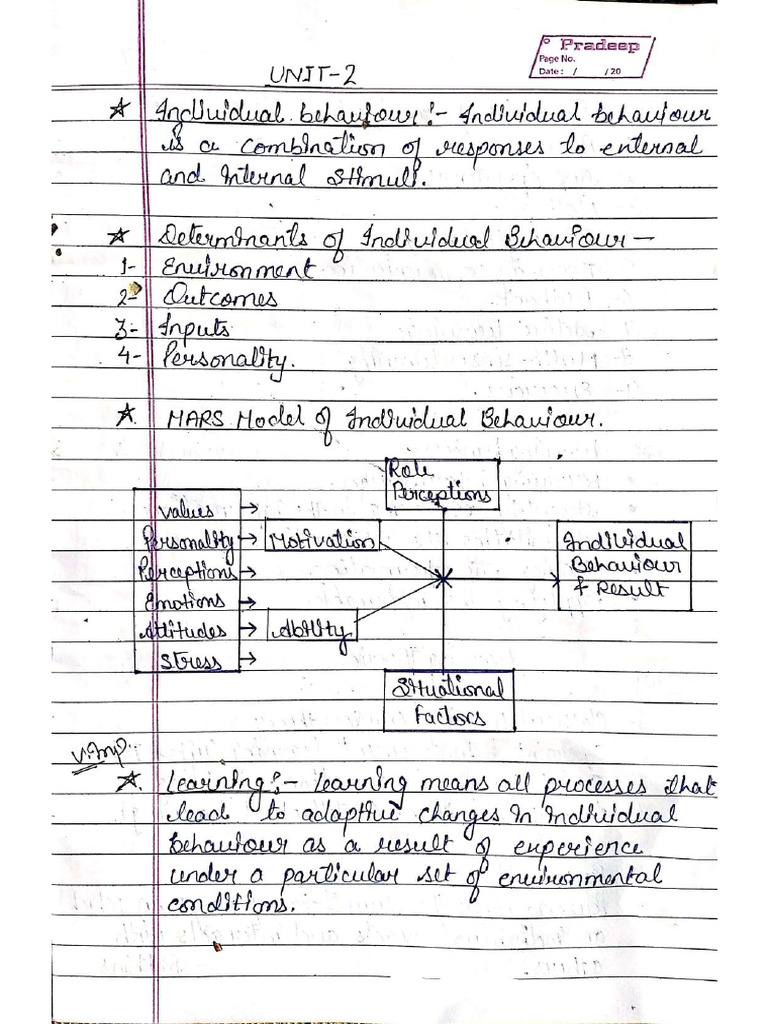 Pradeep
Page No.
Date: / /20
UNIT-2
☆ Individual behaviour:- Individual behaviour
is a combination of responses to external
and internal stimuli.
☆ Determinants of Individual Behaviour—
1- Environment
2- Outcomes
3- Inputs
4- Personality.
☆. MARS Model of Individual Behaviour.
Role
Perceptions
Values
Personality
Perceptions
Emotions
Attitudes
Stress
Motivation
Ability
Individual
Behaviour
& Result
Situational
Factors
V.Imp.
☆. Learning:- Learning means all processes that
lead to adaptive changes in individual
behaviour as a result of experience
under a particular set of environmental
conditions.